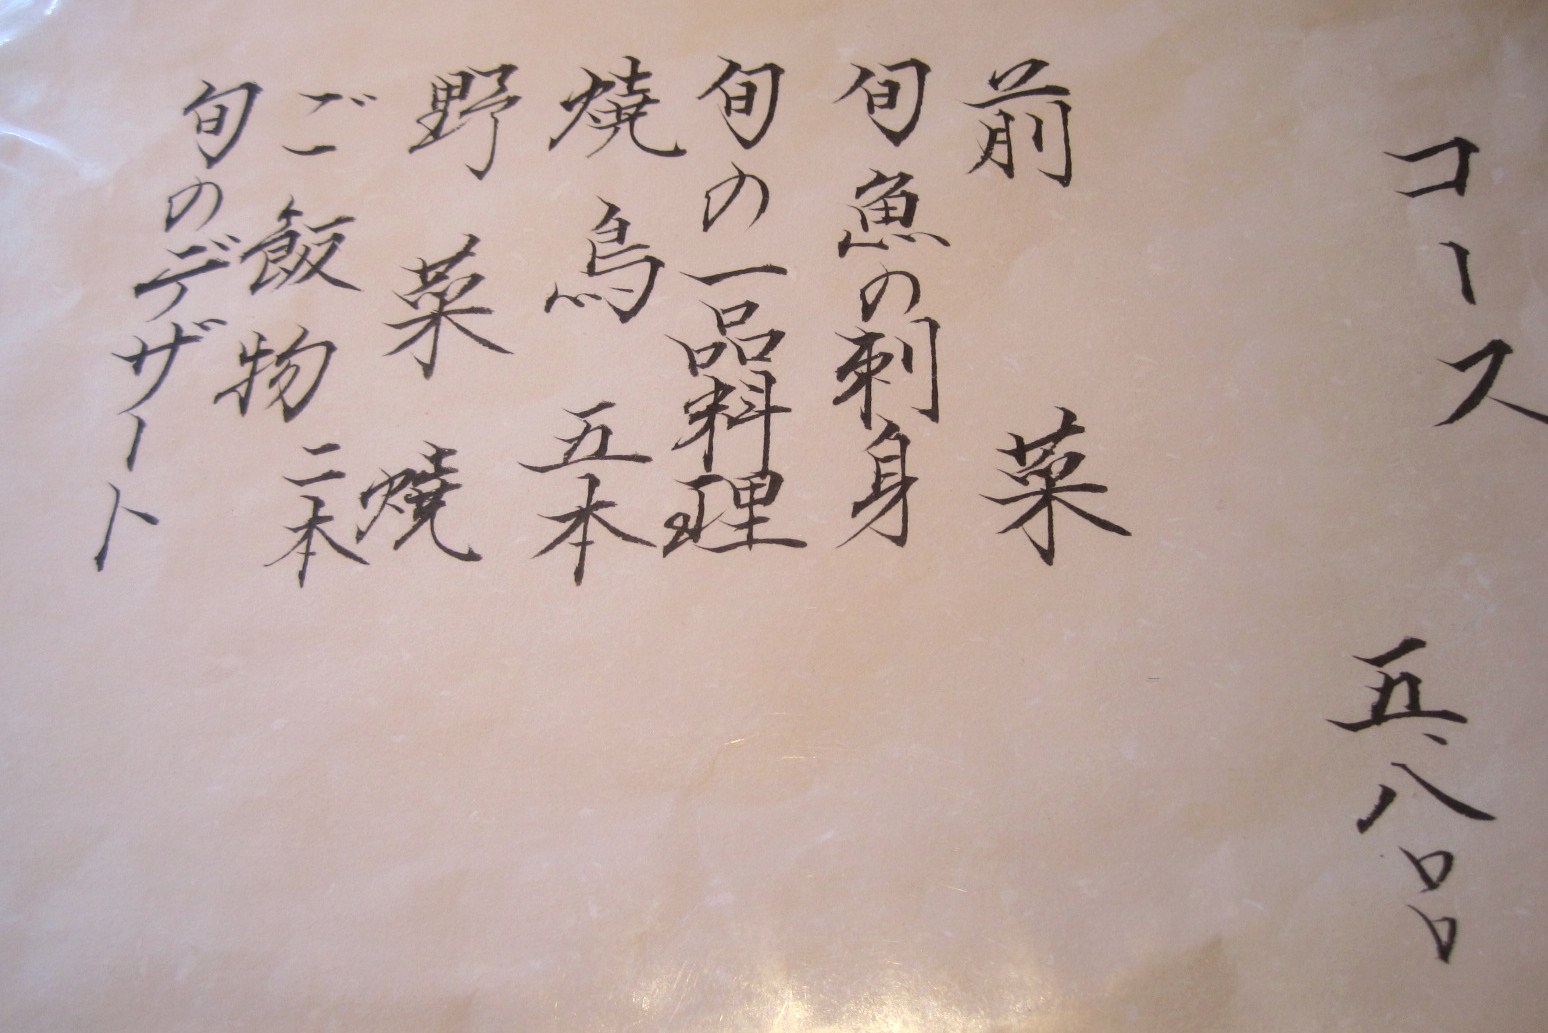 コース 五、八〇〇
前菜
旬魚の刺身
旬の一品料理
焼鳥 五本
野菜焼 二本
ご飯物
旬のデザート